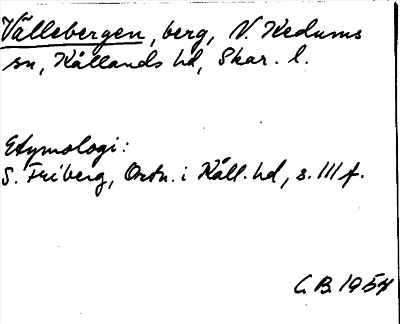 Vällebergen, berg, V. Kedums
sn, Kållands hd, Skar. l.
Etymologi:
S. Friberg, Ortn. i Kåll. hd, s. 111 f.
C.B. 1954